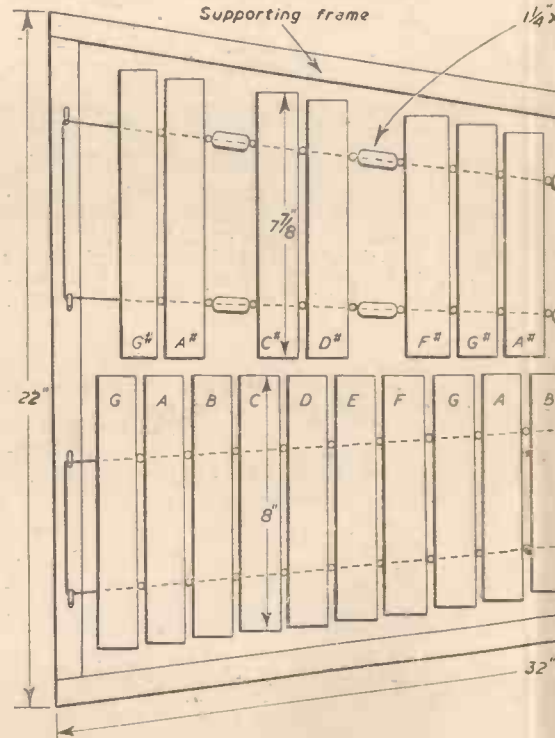 Supporting frame
1¼"x
7⅞"
G# A# C# D# F# G# A#
22"
G A B C D E F G A B
8"
32"